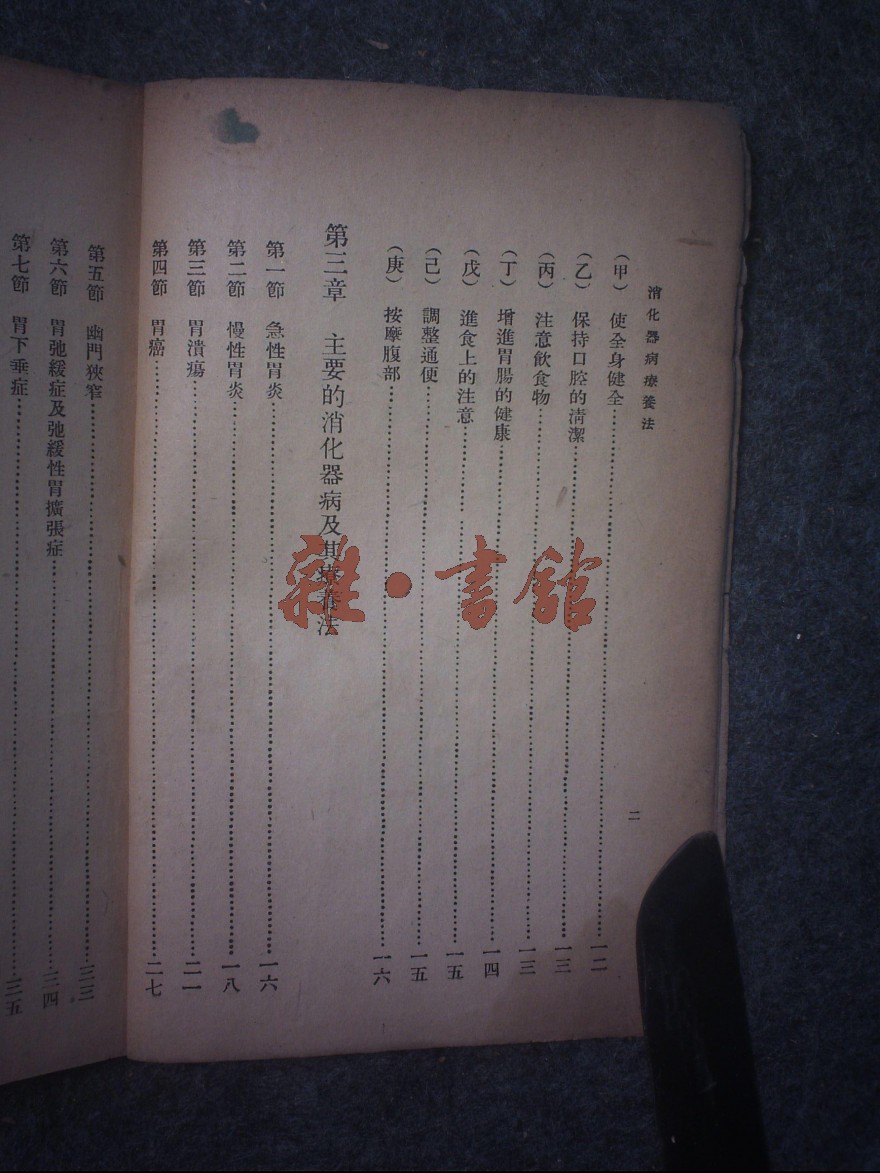 消化器病療養法
二
（甲） 使全身健全……一二
（乙） 保持口腔的清潔……一三
（丙） 注意飲食物……一三
（丁） 增進胃腸的健康……一四
（戊） 進食上的注意……一五
（己） 調整通便……一五
（庚） 按摩腹部……一六
第三章 主要的消化器病及其療養法
第一節 急性胃炎……一六
第二節 慢性胃炎……一八
第三節 胃潰瘍……二一
第四節 胃癌……二七
第五節 幽門狹窄……三三
第六節 胃弛緩症及弛緩性胃擴張症……三四
第七節 胃下垂症……三五
雜·書館